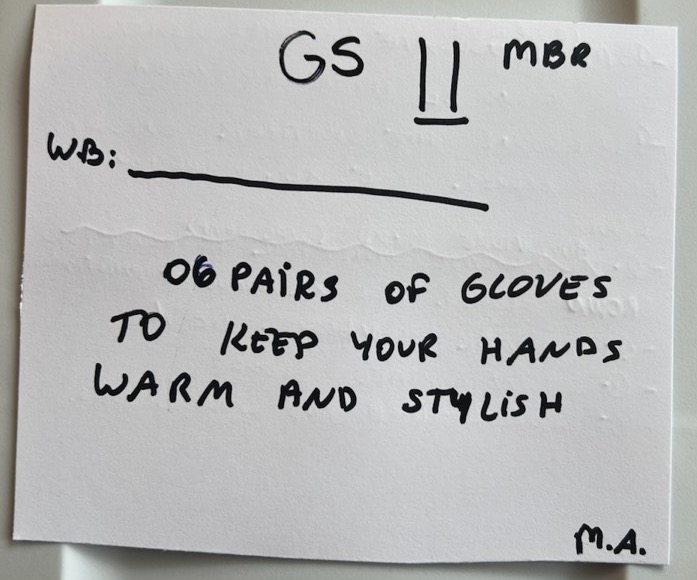 GS 11 MBR
WB:
06 PAiRS OF GLOVES
TO KEEP YOUR HANDS
WARM AND STYLiSH
M.A.